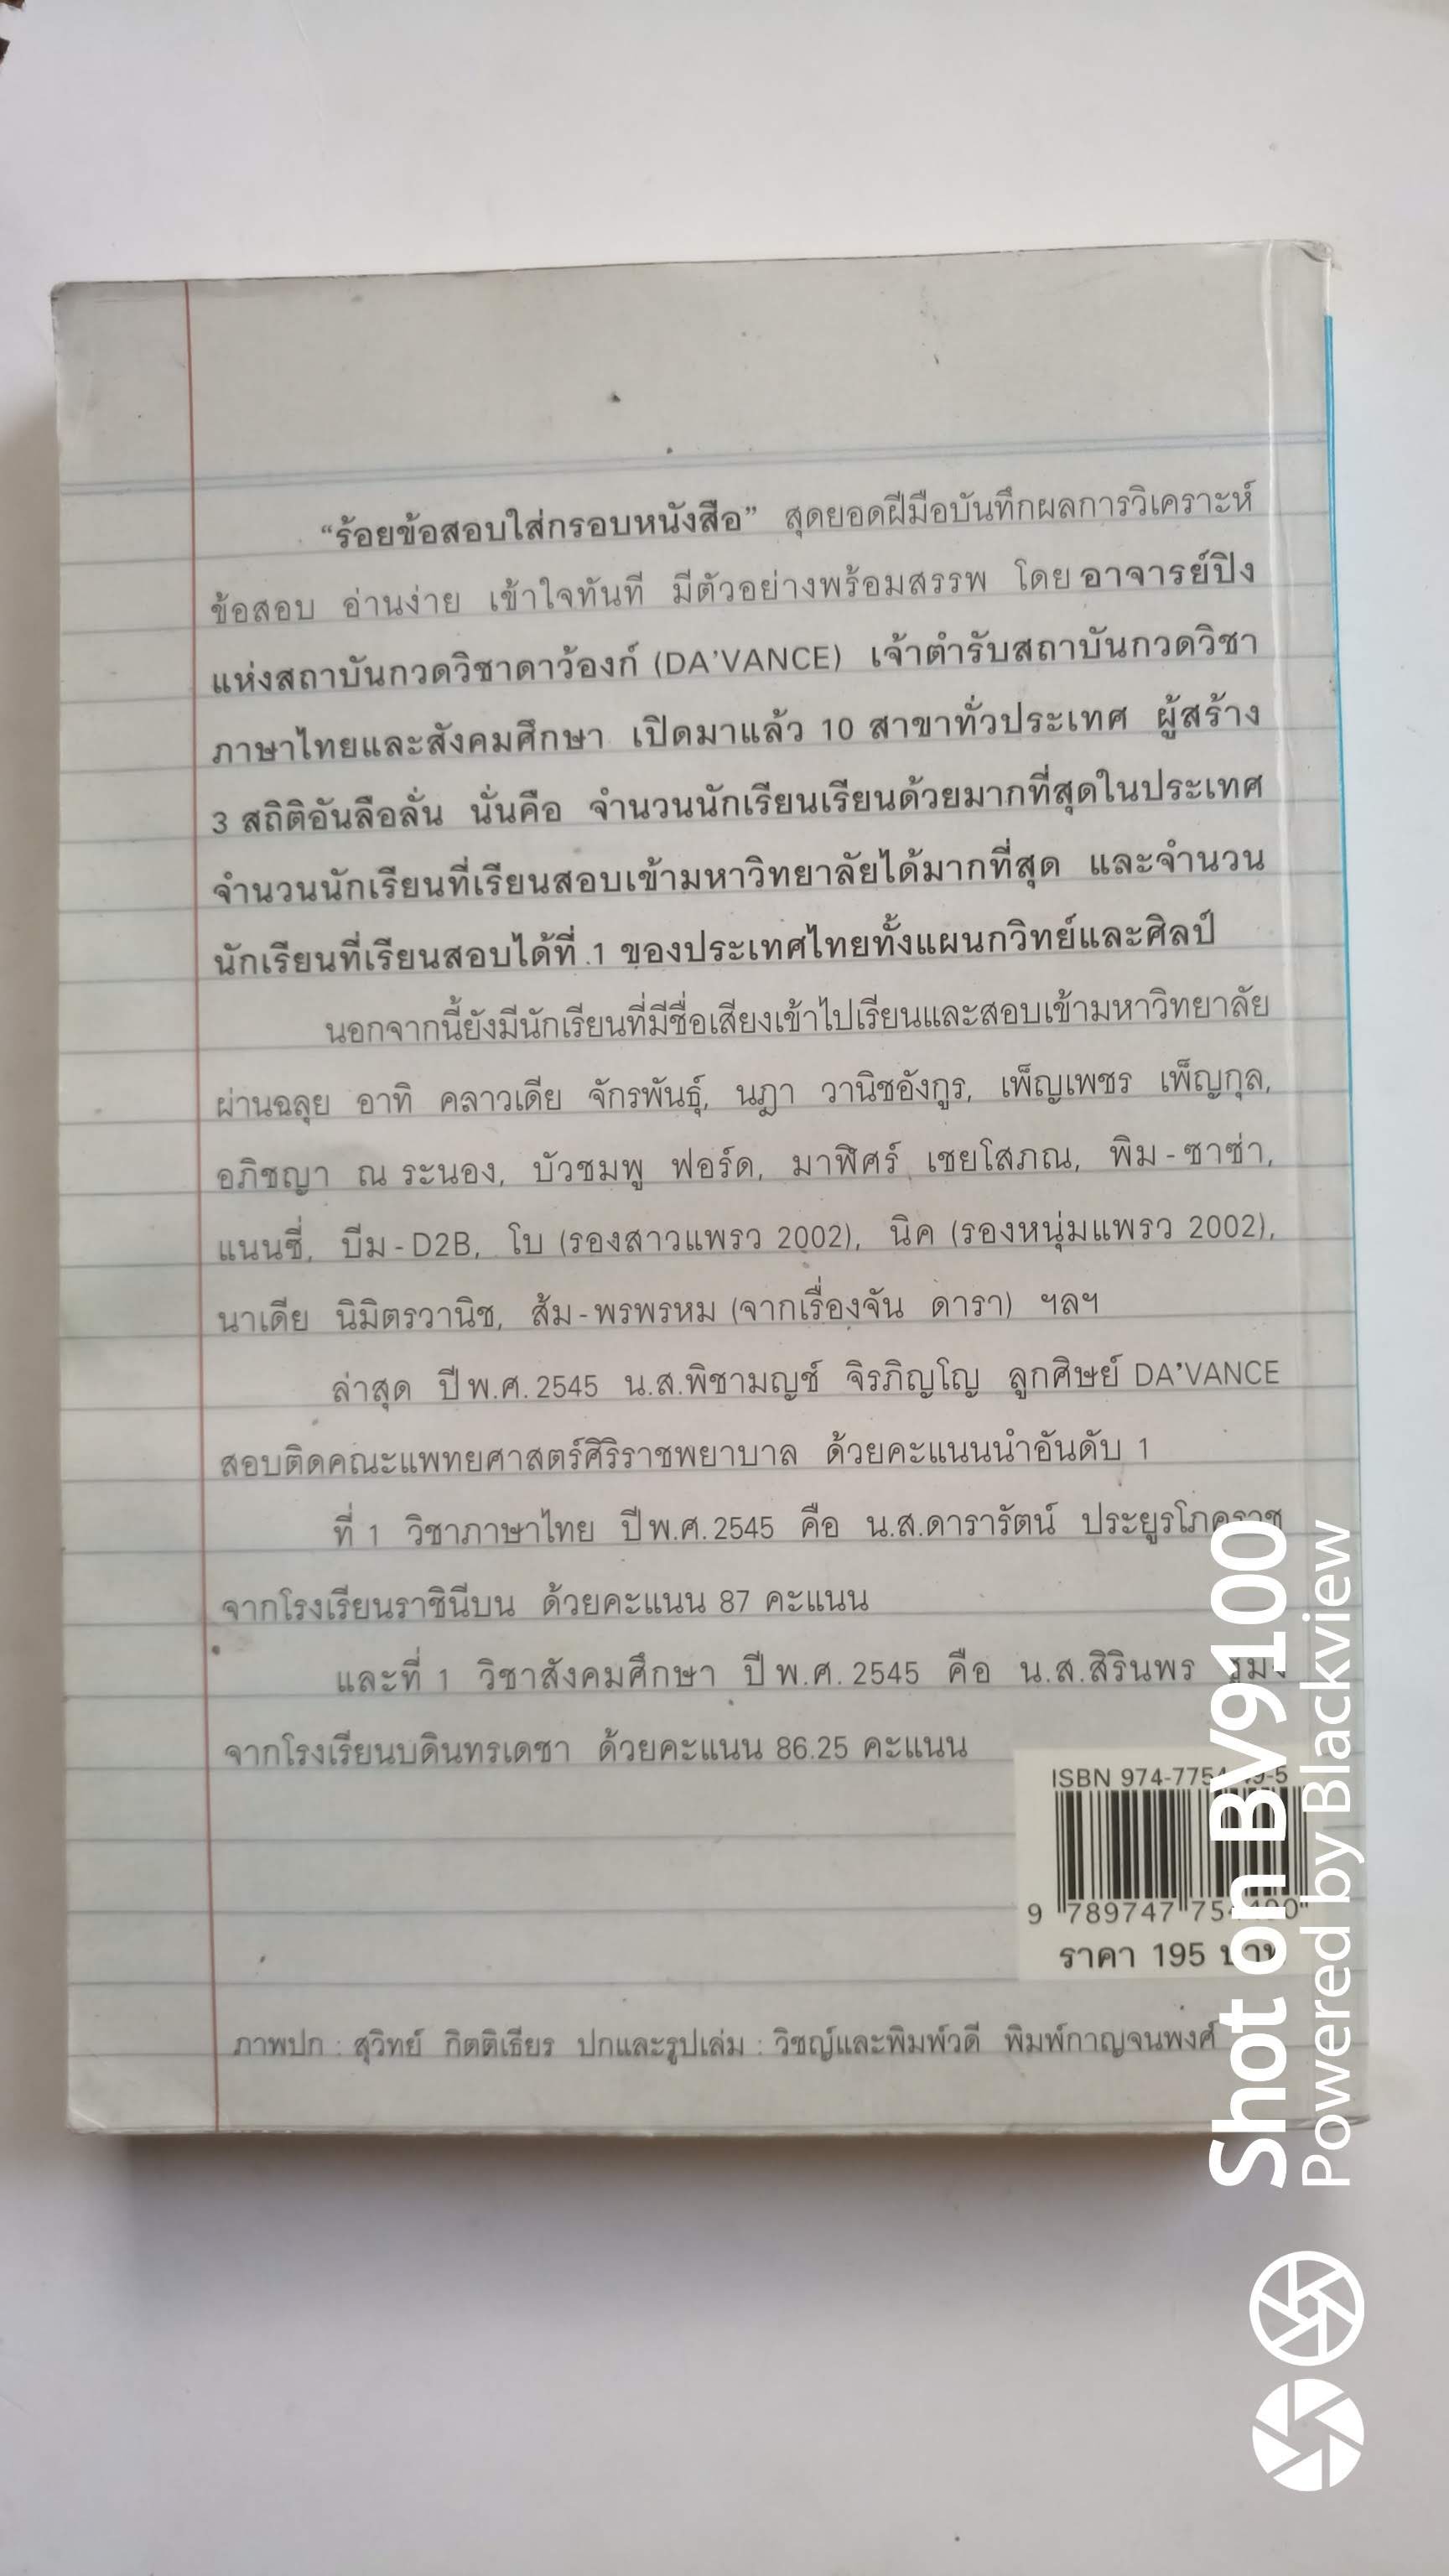 “ร้อยข้อสอบใส่กรอบหนังสือ” สุดยอดฝีมือบันทึกผลการวิเคราะห์
ข้อสอบ อ่านง่าย เข้าใจทันที มีตัวอย่างพร้อมสรรพ โดย อาจารย์ปิง
แห่งสถาบันกวดวิชาดาว้องก์ (DA’VANCE) เจ้าตำรับสถาบันกวดวิชา
ภาษาไทยและสังคมศึกษา เปิดมาแล้ว 10 สาขาทั่วประเทศ ผู้สร้าง
3 สถิติอันลือลั่น นั่นคือ จำนวนนักเรียนเรียนด้วยมากที่สุดในประเทศ
จำนวนนักเรียนที่เรียนสอบเข้ามหาวิทยาลัยได้มากที่สุด และจำนวน
นักเรียนที่เรียนสอบได้ที่ 1 ของประเทศไทยทั้งแผนกวิทย์และศิลป์
นอกจากนี้ยังมีนักเรียนที่มีชื่อเสียงเข้าไปเรียนและสอบเข้ามหาวิทยาลัย
ผ่านฉลุย อาทิ คลาวเดีย จักรพันธุ์, นฎา วานิชอังกูร, เพ็ญเพชร เพ็ญกุล,
อภิชญา ณ ระนอง, บัวชมพู ฟอร์ด, มาฬิศร์ เชยโสภณ, พิม - ซาซ่า,
แนนซี่, บีม - D2B, โบ (รองสาวแพรว 2002), นิค (รองหนุ่มแพรว 2002),
นาเดีย นิมิตรวานิช, ส้ม - พรพรหม (จากเรื่องจัน ดารา) ฯลฯ
ล่าสุด ปี พ.ศ. 2545 น.ส.พิชามญช์ จิรภิญโญ ลูกศิษย์ DA’VANCE
สอบติดคณะแพทยศาสตร์ศิริราชพยาบาล ด้วยคะแนนนำอันดับ 1
ที่ 1 วิชาภาษาไทย ปี พ.ศ. 2545 คือ น.ส.ดารารัตน์ ประยูรโภคราช
จากโรงเรียนราชินีบน ด้วยคะแนน 87 คะแนน
และที่ 1 วิชาสังคมศึกษา ปี พ.ศ. 2545 คือ น.ส.สิรินพร
จากโรงเรียนบดินทรเดชา ด้วยคะแนน 86.25 คะแนน
ISBN
9 789747
ราคา 195 บาท
ภาพปก : สุวิทย์ กิตติเธียร ปกและรูปเล่ม : วิชญ์และพิมพ์วดี พิมพ์กาญจนพงศ์
Shot on BV9100
Powered by Blackview